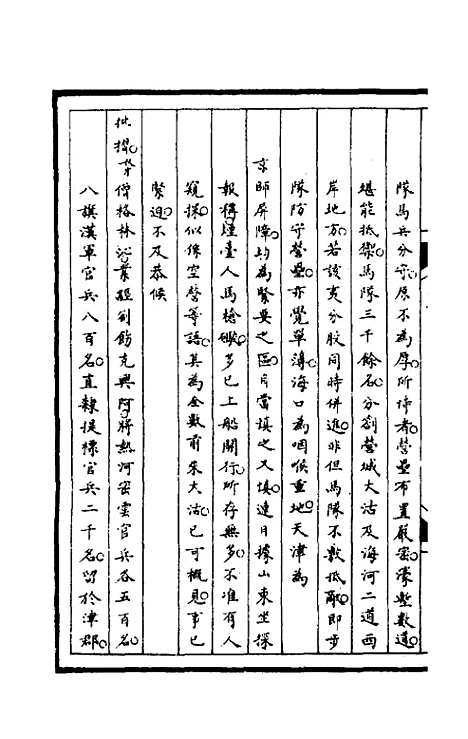 隊馬兵分守原不為厚所恃者營壘布置嚴密濠塹數道
堪能抵禦馬隊三千餘名分劄營城大沽及海河二道西
岸地方若該夷分股同時併進非但馬隊不敷抵敵即步
隊防守營壘亦覺單薄海口為咽喉重地天津為
京師屏障均為緊要之區自當慎之又慎連日據山東坐探
報稱煙臺人馬槍礮多已上船開行所存無多不准有人
窺探似係空營等語其為全數前來大沽已可概見事已
緊迫不及恭候
批摺僧格林沁業經劄飭克興阿將熱河密雲官兵各五百名
八旗漢軍官兵八百名直隸提標官兵二千名留於津郡